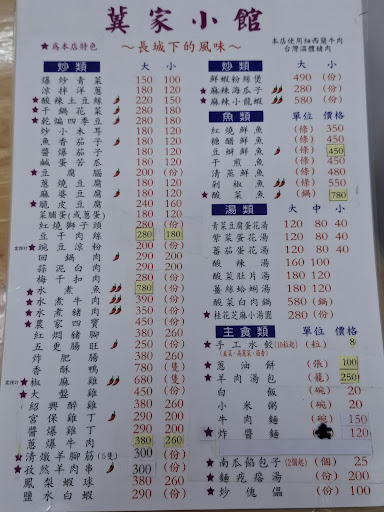 冀家小館
★為本店特色
～長城下的風味～
本店使用紐西蘭牛肉
台灣溫體豬肉
炒類 大 小
爆炒青菜 150 100
涼拌洋蔥 180 120
★酸辣土豆絲 220 150
★干鍋花菜 220 150
★乾煸四季豆 280 210
炒小木耳 180 120
魚香茄子 180 120
醬爆茄子 180 120
鹹蛋苦瓜 180 120
★豆腐腦 200 (份)
蔥燒豆腐 180 120
麻婆豆腐 180 120
★脆皮豆腐 240 160
菜脯蛋(或蔥蛋) 180 120
紅燒獅子頭 280 (份)
豆干肉絲 280 180
★豌豆涼粉 200 (份)
回鍋肉
蒜泥白肉
梅干扣肉
★水煮魚 780 (份)
★水煮牛肉
★水煮豬肉
★農家四寶
紅燜豬腳
五更腸旺 250 (份)
炸肥腸 380 260
香酥鴨 780 (隻)
★椒麻雞
★大盤雞
紹興醉雞
宮保雞丁
醬爆雞丁
蔥爆牛肉 380 260
★清燉羊腳筋(5隻) 300 (份)
★孜然羊肉串 300 (份)
鳳梨蝦球 380 260
鹽水白蝦 290 (份)
炒類 單位 價格
鮮蝦粉絲煲 490 (份)
★麻辣海瓜子 280 (份)
★麻辣小龍蝦 580 (份)
魚類 單位 價格
紅燒鮮魚 (條) 350
糖醋鮮魚 (條) 450
豆瓣鮮魚 (條) 450
干煎魚 (條) 450
清蒸鮮魚 (條) 480
剁椒魚 (條) 550
★酸菜魚 (鍋) 780
湯類 大 中 小
青菜豆腐蛋花湯 120 80 40
紫菜蛋花湯 120 80 40
蕃茄蛋花湯 120 80 40
酸辣湯 160 100
酸菜肚片湯 180 120
薑絲蛤蜊湯 180 120
酸菜白肉鍋 580 (鍋)
★桂花芝麻小湯圓 280 (份)
主食類 單位 價格
★手工水餃(10粒起) (粒) 8
(韭菜、高麗菜、茴香)
★蔥油餅 (張) 100
★羊肉湯包 (籠) 250
白飯 (碗) 20
小米粥 (碗) 20
牛肉麵 (碗) 150
★炸醬麵 120
★南瓜餡包子(2個起) (個) 25
★麵疙瘩湯 (份) 200
★炒傀儡 (份) 100